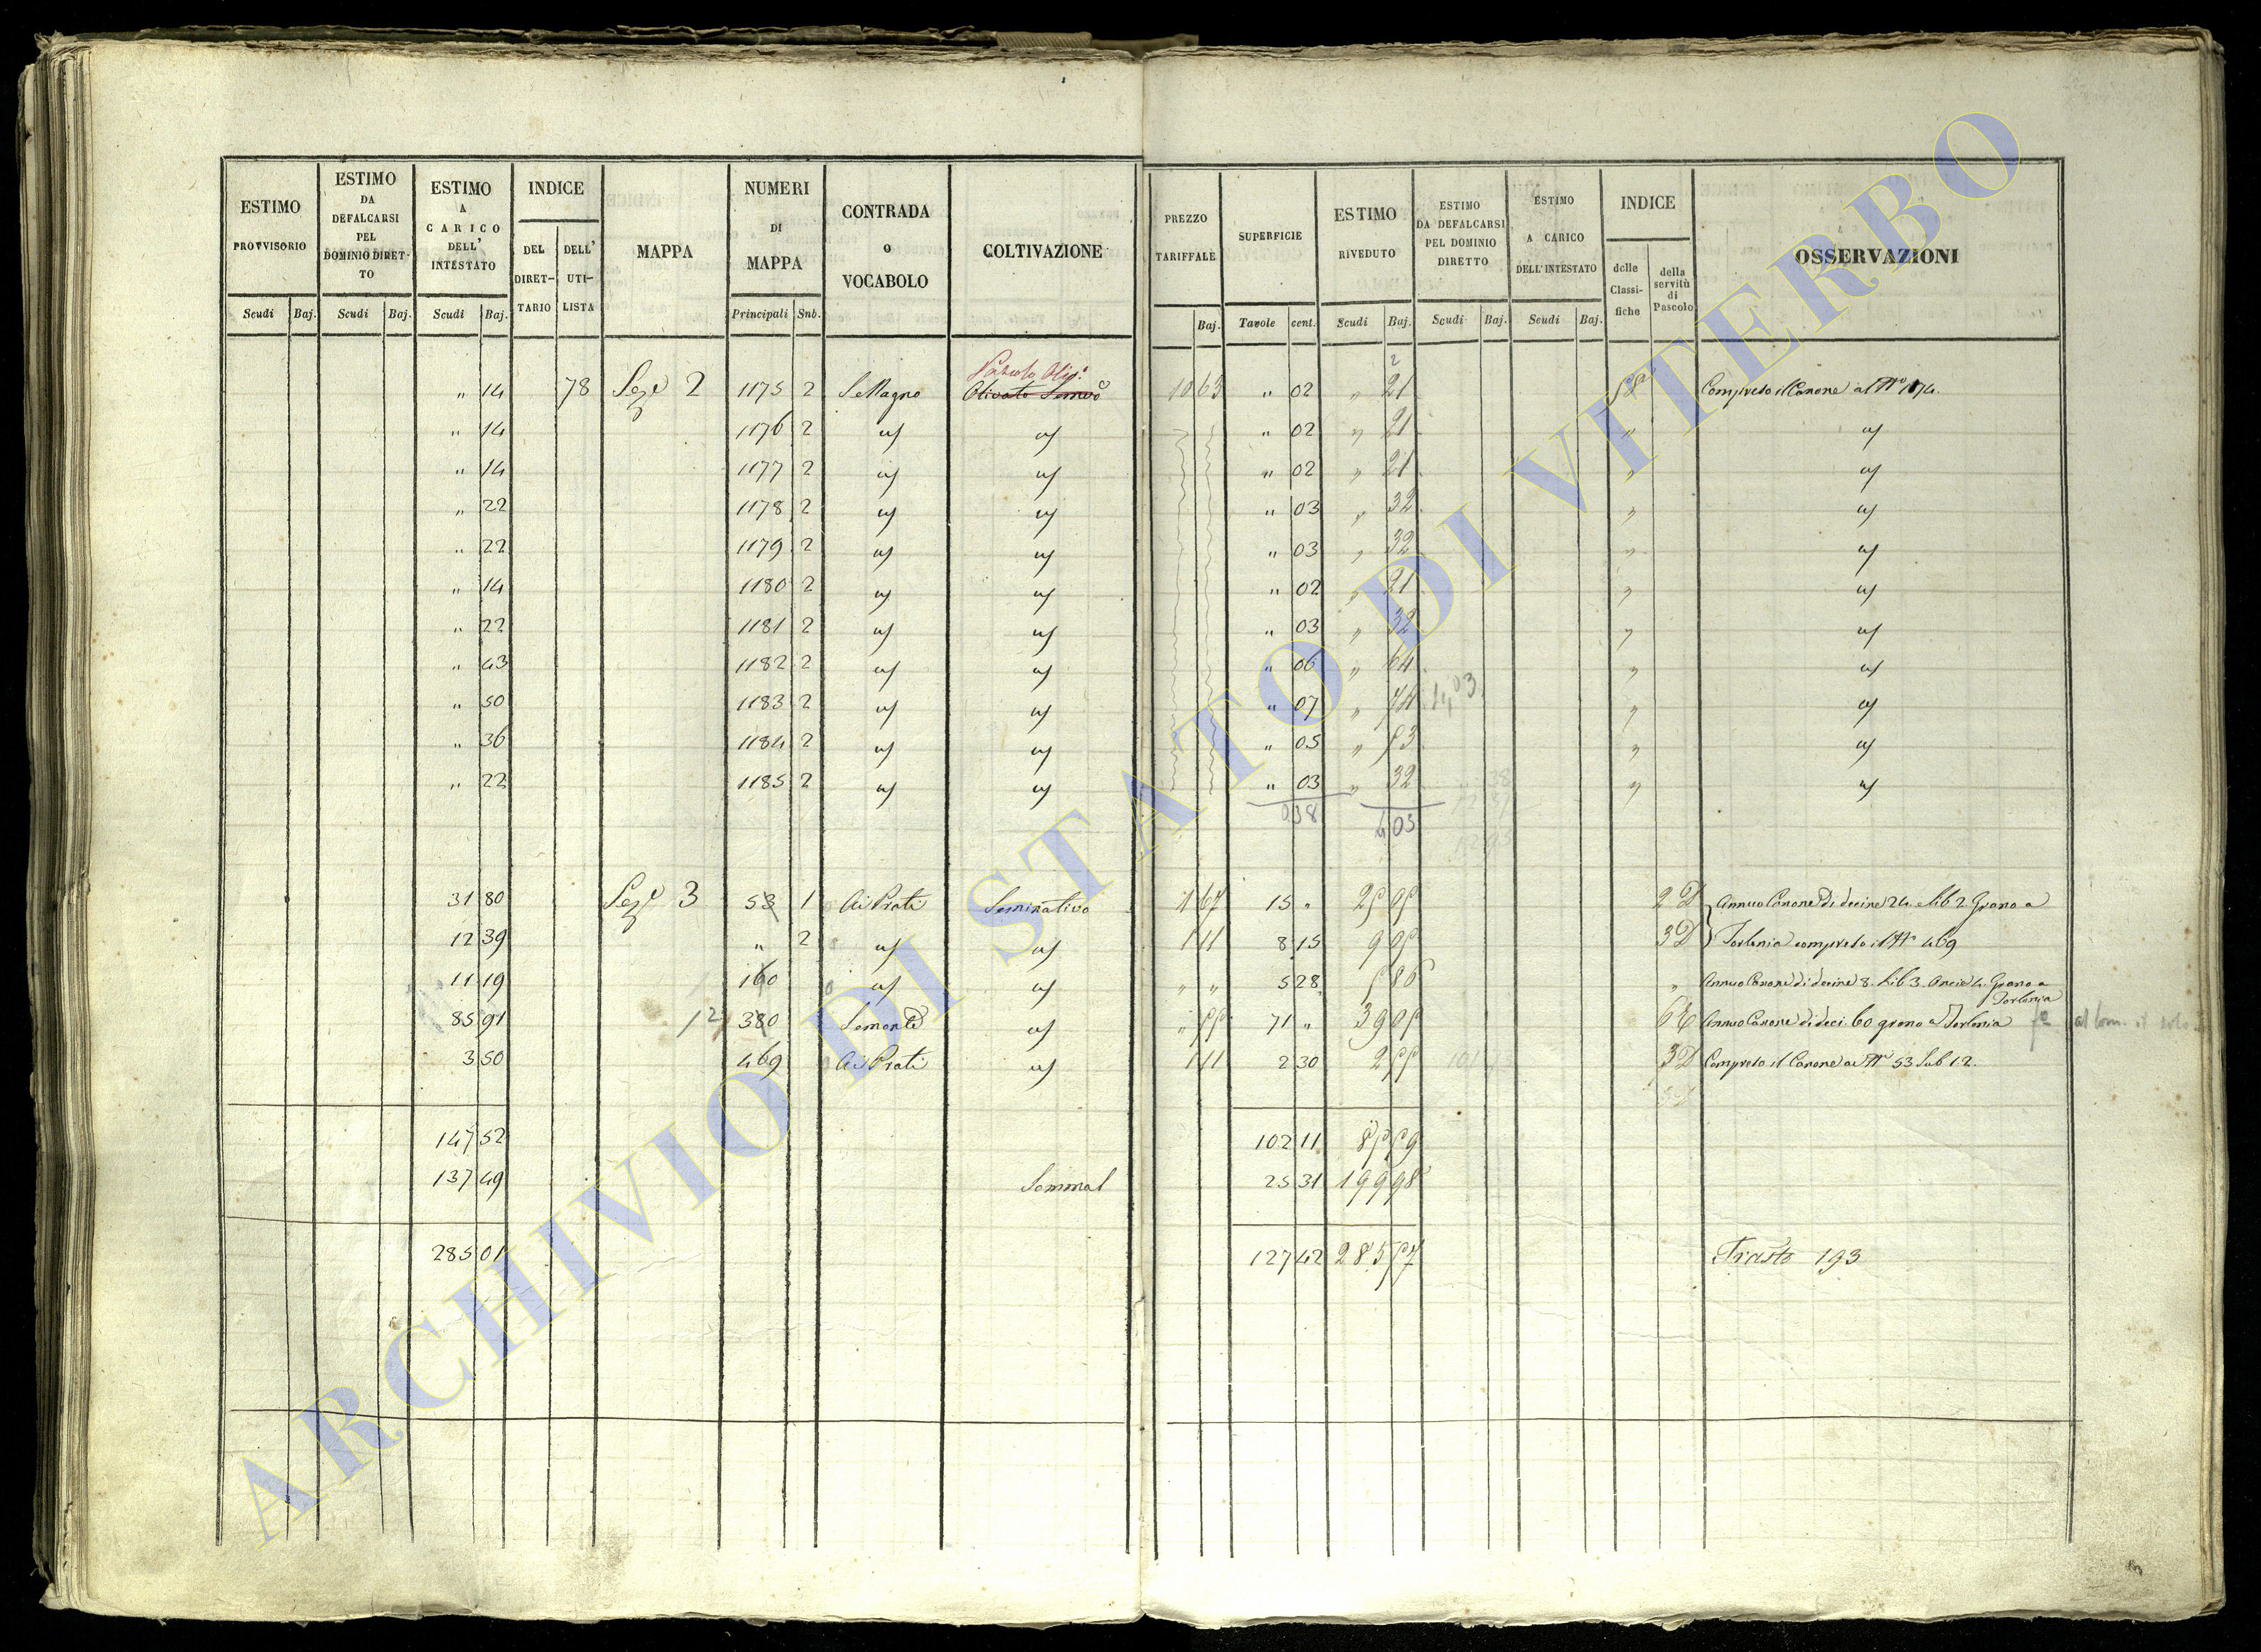 ESTIMO PROVVISORIO Scudi Baj.
ESTIMO DA DEFALCARSI PEL DOMINIO DIRETTO Scudi Baj.
ESTIMO A CARICO DELL' INTESTATO Scudi Baj.
INDICE DEL DIRETTARIO DELL' UTILISTA
MAPPA
NUMERI DI MAPPA Principali Sub.
CONTRADA O VOCABOLO
COLTIVAZIONE
PREZZO TARIFFALE Baj.
SUPERFICIE Tavole cent.
ESTIMO RIVEDUTO Scudi Baj.
ESTIMO DA DEFALCARSI PEL DOMINIO DIRETTO Scudi Baj.
ESTIMO A CARICO DELL'INTESTATO Scudi Baj.
INDICE delle Classifiche della servitù di Pascolo
OSSERVAZIONI
" 14 78 Sez.e 2 1175 2 10 63 " 02 " 21 Compreso il Canone al N°
" 14 1176 2 " " " 02 " 21 " "
" 14 1177 2 " " " 02 " 21 " "
" 22 1178 2 " " " 03 " 32 " "
" 22 1179 2 " " " 03 " 32 " "
" 14 1180 2 " " " 02 " 21 " "
" 22 1181 2 " " " 03 " 32 " "
" 43 1182 2 " " " 06 " 64 " "
" 50 1183 2 " " " 07 " 74 " "
" 36 1184 2 " " " 05 " 53 " "
" 22 1185 2 " " " 03 " 32 " "
038 4 03
31 80 Sez.e 3 53 1 Ai Prati Seminativo 1 67 15 " 25 05 2 D Annuo Canone di decine 24 e lib 2. Grano a
12 39 " 2 " " 1 11 8 15 9 05 3 D Torlonia compreso il N° 469
11 19 160 " " " " 5 28 5 86 " Annuo Canone di decine 8. Lib 3. Oncie 4. Grano a
Torlonia
85 91 380 " " 55 71 " 39 05 6 E Annuo Canone di deci. 60 grano a Torlonia
3 50 469 Ai Prati " 1 11 2 30 2 55 3 D Compreso il Canone al N° 53 Sub 1.2.
147 52 102 11 85 59
137 49 25 31 199 98
285 01 127 42 285 57 193
ARCHIVIO DI STATO DI VITERBO